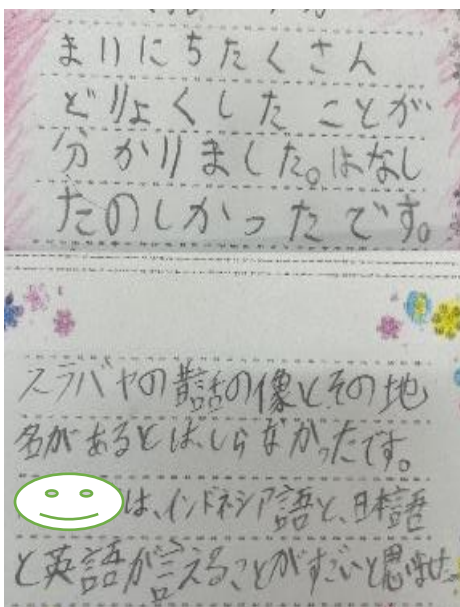 まいにちたくさん
どりょくしたことが
分かりました。はなし
たのしかったです。
スラバヤの昔話の像とその地
名があるとは、しらなかったです。
は、インドネシア語と、日本語
と英語が言えることがすごいと思いました。